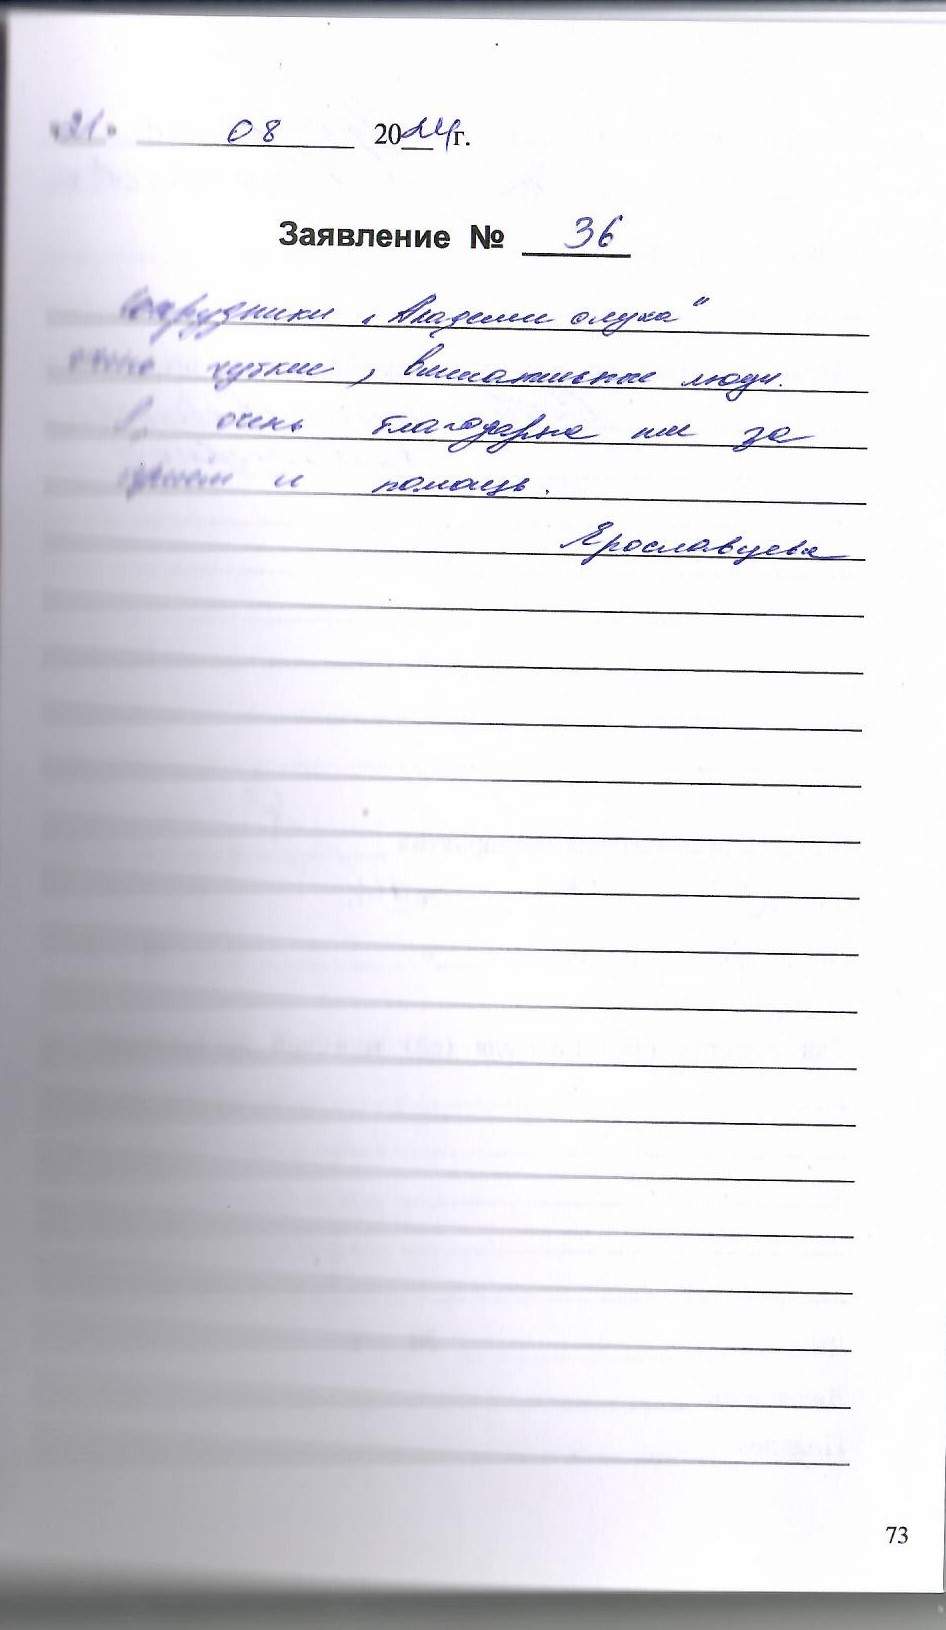 «21» 08 2024 г.
Заявление № 36
Сотрудники „Академии слуха"
очень чуткие, внимательные люди.
очень благодарна им за
приём и помощь.
Ярославцева
73